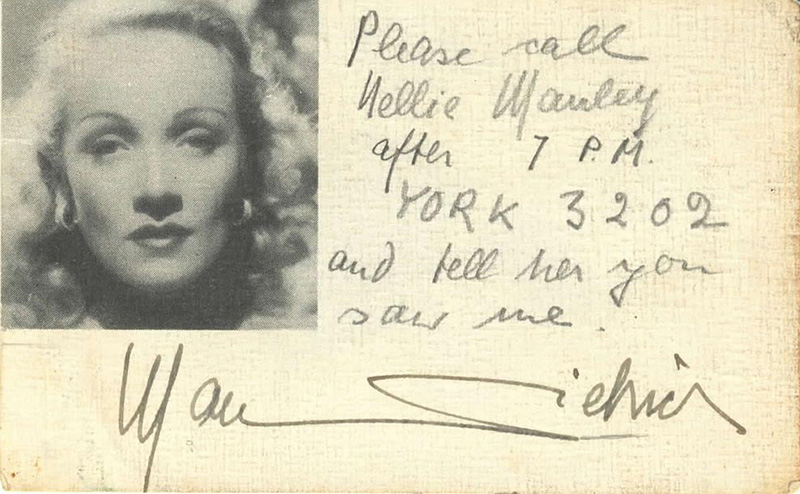 Please call
Nellie Manley
after 7 P.M.
YORK 3202
and tell her you
saw me.
Marlene Dietrich